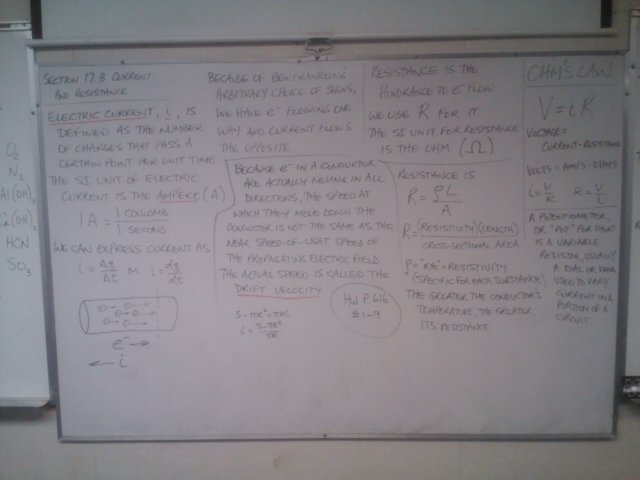 SECTION 17.3 CURRENT
AND RESISTANCE
ELECTRIC CURRENT, i, IS
DEFINED AS THE NUMBER
OF CHARGES THAT PASS A
CERTAIN POINT PER UNIT TIME
THE SI UNIT OF ELECTRIC
CURRENT IS THE AMPERE (A)
1A = 1 COULOMB
1 SECOND
WE CAN EXPRESS CURRENT AS
i = Δq/Δt OR i = dq/dt
e⁻ →
← i
BECAUSE OF BEN FRANKLIN'S
ARBITRARY CHOICE OF SIGNS,
WE HAVE e⁻ FLOWING ONE
WAY AND CURRENT FLOWS
THE OPPOSITE
BECAUSE e⁻ IN A CONDUCTOR
ARE ACTUALLY MOVING IN ALL
DIRECTIONS, THE SPEED AT
WHICH THEY MOVE DOWN THE
CONDUCTOR IS NOT THE SAME AS THE
NEAR SPEED-OF-LIGHT SPEED OF
THE PROPAGATING ELECTRIC FIELD.
THE ACTUAL SPEED IS CALLED THE
DRIFT VELOCITY
S - πR² = πRL
L = S - πR²
πR
HW P. 616
#1-9
RESISTANCE IS THE
HINDRANCE TO e⁻ FLOW
WE USE R FOR IT.
THE SI UNIT FOR RESISTANCE
IS THE OHM (Ω)
RESISTANCE IS
R = ρL
A
R = (RESISTIVITY)(LENGTH)
CROSS-SECTIONAL AREA
ρ = "RHO" = RESISTIVITY
(SPECIFIC FOR EACH SUBSTANCE)
THE GREATER THE CONDUCTOR'S
TEMPERATURE, THE GREATER
ITS RESISTANCE
OHM'S LAW
V = iR
VOLTAGE =
CURRENT · RESISTANCE
VOLTS = AMPS · OHMS
i = V/R R = V/i
A POTENTIOMETER,
OR "POT" FOR SHORT
IS A VARIABLE
RESISTOR, USUALLY
A DIAL OR
USED TO VARY
CURRENT IN A
PORTION OF A
CIRCUIT.
O₂
N₂
(OH)
(OH)₂
HCN
SO₃